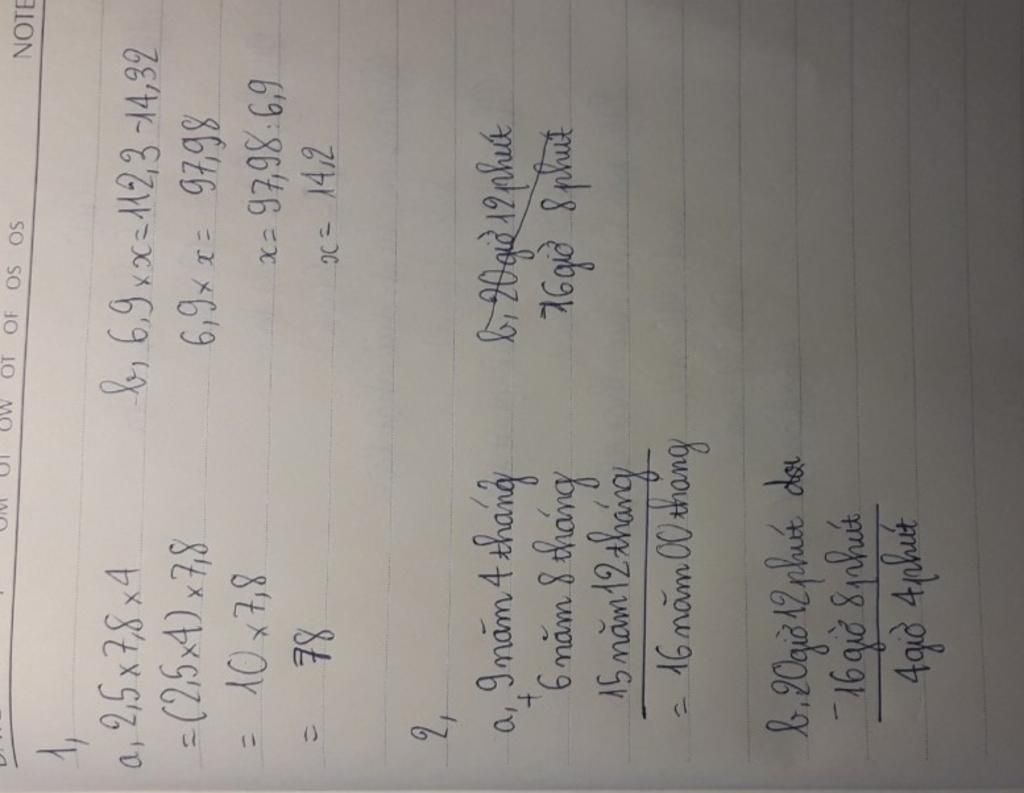 NOTE
OM OT OW OT OF OS OS
1,
a, 2,5 x 7,8 x 4
= (2,5 x 4) x 7,8
= 10 x 7,8
= 78
b, 6,9 x x = 112,3 - 14,32
6,9 x x = 97,98
x = 97,98 : 6,9
x = 14,2
2,
a, 9 năm 4 tháng
+
6 năm 8 tháng
15 năm 12 tháng
= 16 năm 00 tháng
b, 20 giờ 12 phút
16 giờ 8 phút
b, 20 giờ 12 phút
- 16 giờ 8 phút
4 giờ 4 phút